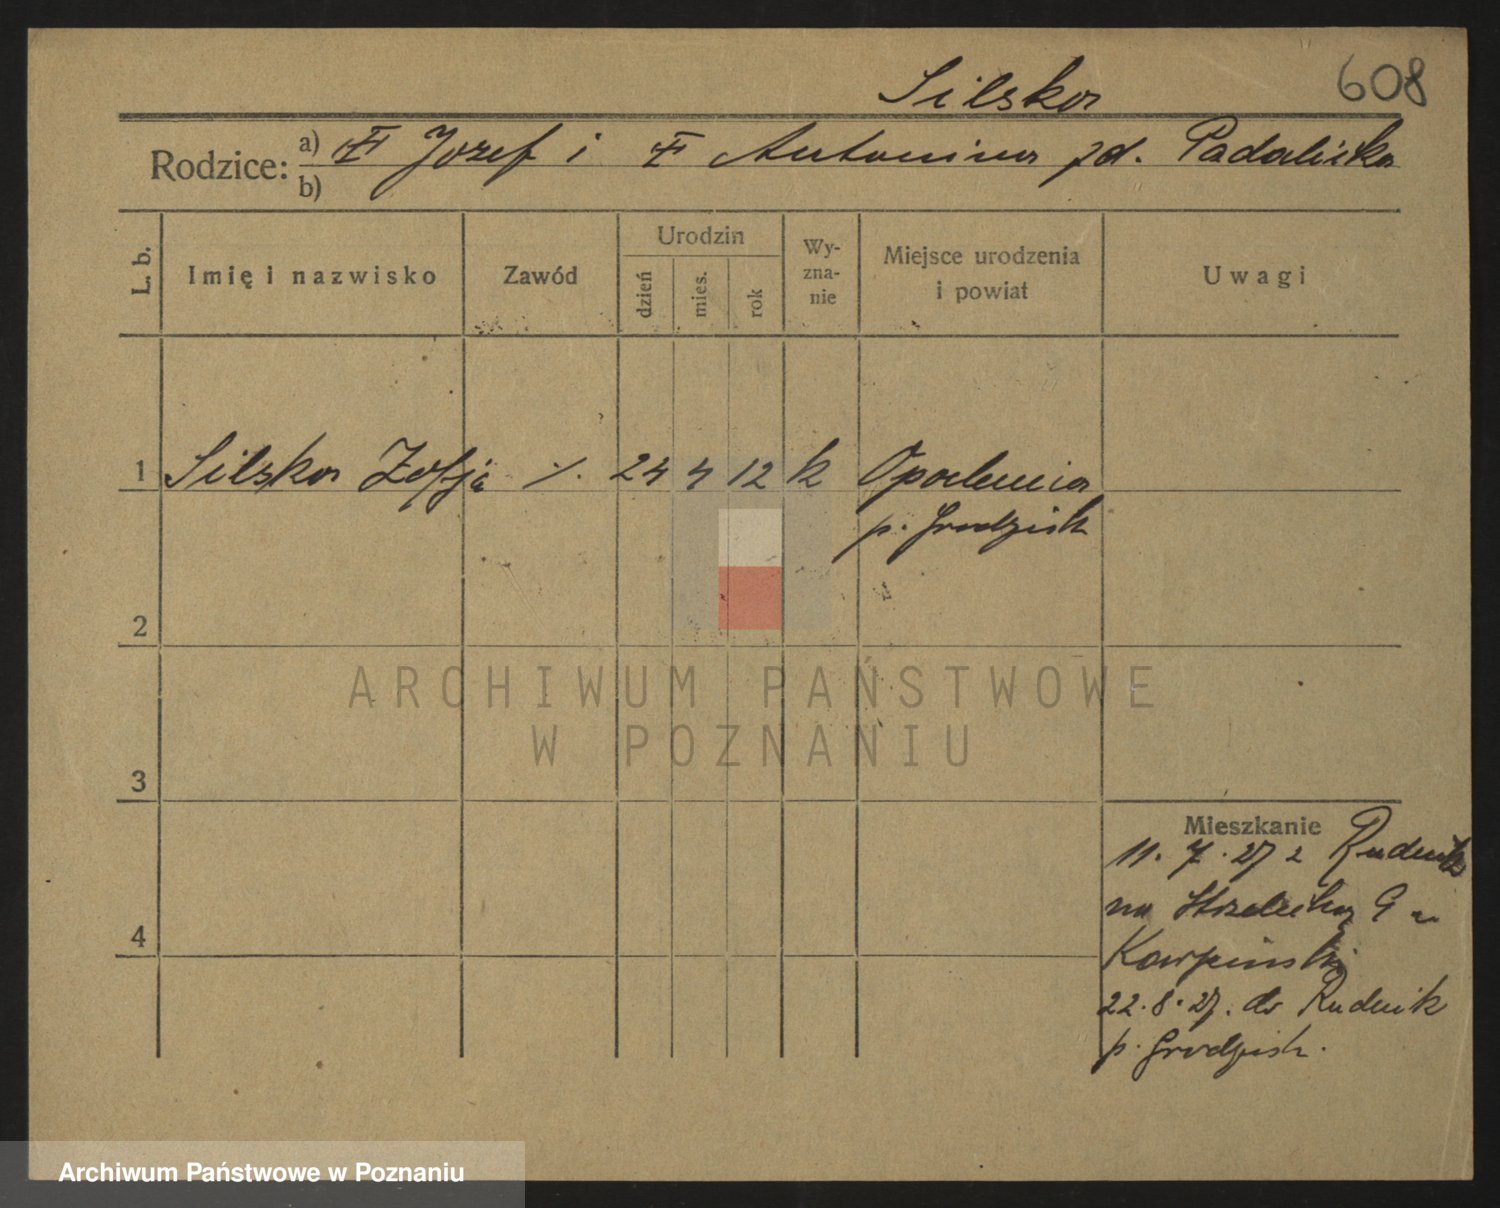 Silska
608
Rodzice: a) Józef i Antonina zd. Padalicka
b)
L. b.
Imię i nazwisko
Zawód
Urodzin
dzień
mies.
rok
Wy-
zna-
nie
Miejsce urodzenia
i powiat
Uwagi
1 Silska Zofja ·/. 24 4 12 k Opalenica
p. Grodzisk
2
ARCHIWUM PAŃSTWOWE
W POZNANIU
3
Mieszkanie
11. 7. 27 z Rudnik
na Strzelecką 9 u
Karpiński
4
22. 8. 27. do Rudnik
p. Grodzisk.
Archiwum Państwowe w Poznaniu